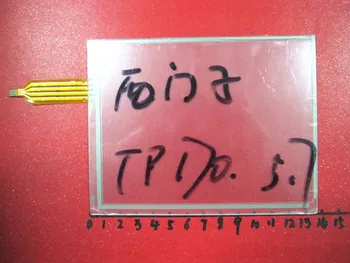 西门子
TP170. 5.7
0 1 2 3 4 5 6 7 8 9 10 11 12 13 14 15